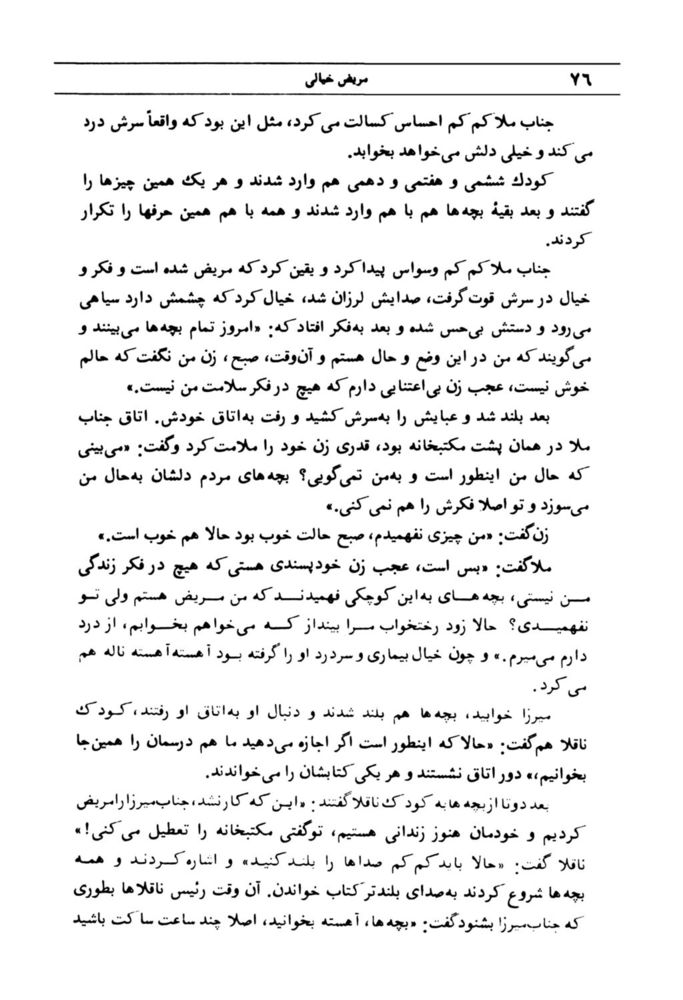 ۷۶
مریض خیالی
جناب ملا کم کم احساس کسالت می‌کرد، مثل این بود که واقعاً سرش درد
می‌کند و خیلی دلش می‌خواهد بخوابد.
کودک ششمی و هفتمی و دهمی هم وارد شدند و هر یک همین چیزها را
گفتند و بعد بقیهٔ بچه‌ها هم با هم وارد شدند و همه با هم همین حرفها را تکرار
کردند.
جناب ملا کم کم وسواس پیدا کرد و یقین کرد که مریض شده است و فکر و
خیال در سرش قوت گرفت، صدایش لرزان شد، خیال کرد که چشمش دارد سیاهی
می‌رود و دستش بی‌حس شده و بعد به‌فکر افتاد که: «امروز تمام بچه‌ها می‌بینند و
می‌گویند که من در این وضع و حال هستم و آن‌وقت، صبح، زن من نگفت که حالم
خوش نیست، عجب زن بی‌اعتنایی دارم که هیچ در فکر سلامت من نیست.»
بعد بلند شد و عبایش را به‌سرش کشید و رفت به‌اتاق خودش. اتاق جناب
ملا در همان پشت مکتبخانه بود، قدری زن خود را ملامت کرد و گفت: «می‌بینی
که حال من اینطور است و به‌من نمی‌گویی؟ بچه‌های مردم دلشان به‌حال من
می‌سوزد و تو اصلا فکرش را هم نمی‌کنی.»
زن گفت: «من چیزی نفهمیدم، صبح حالت خوب بود حالا هم خوب است.»
ملا گفت: «بس است، عجب زن خودپسندی هستی که هیچ در فکر زندگی
من نیستی، بچه‌های به‌این کوچکی فهمیدند که من مریض هستم ولی تو
نفهمیدی؟ حالا زود رختخواب مرا بینداز که می‌خواهم بخوابم، از درد
دارم می‌میرم.» و چون خیال بیماری و سردرد او را گرفته بود آهسته‌آهسته ناله هم
می‌کرد.
میرزا خوابید، بچه‌ها هم بلند شدند و دنبال او به‌اتاق او رفتند، کودک
ناقلا هم گفت: «حالا که اینطور است اگر اجازه می‌دهید ما هم درسمان را همین‌جا
بخوانیم،» دور اتاق نشستند و هر یکی کتابشان را می‌خواندند.
بعد دوتا از بچه‌ها به کودک ناقلا گفتند: «این که کار نشد، جناب‌میرزا را مریض
کردیم و خودمان هنوز زندانی هستیم، تو گفتی مکتبخانه را تعطیل می‌کنی!»
ناقلا گفت: «حالا باید کم کم صداها را بلند کنید» و اشاره کردند و همه
بچه‌ها شروع کردند به‌صدای بلندتر کتاب خواندن. آن وقت رئیس ناقلاها بطوری
که جناب‌میرزا بشنود گفت: «بچه‌ها، آهسته بخوانید، اصلا چند ساعت ساکت باشید